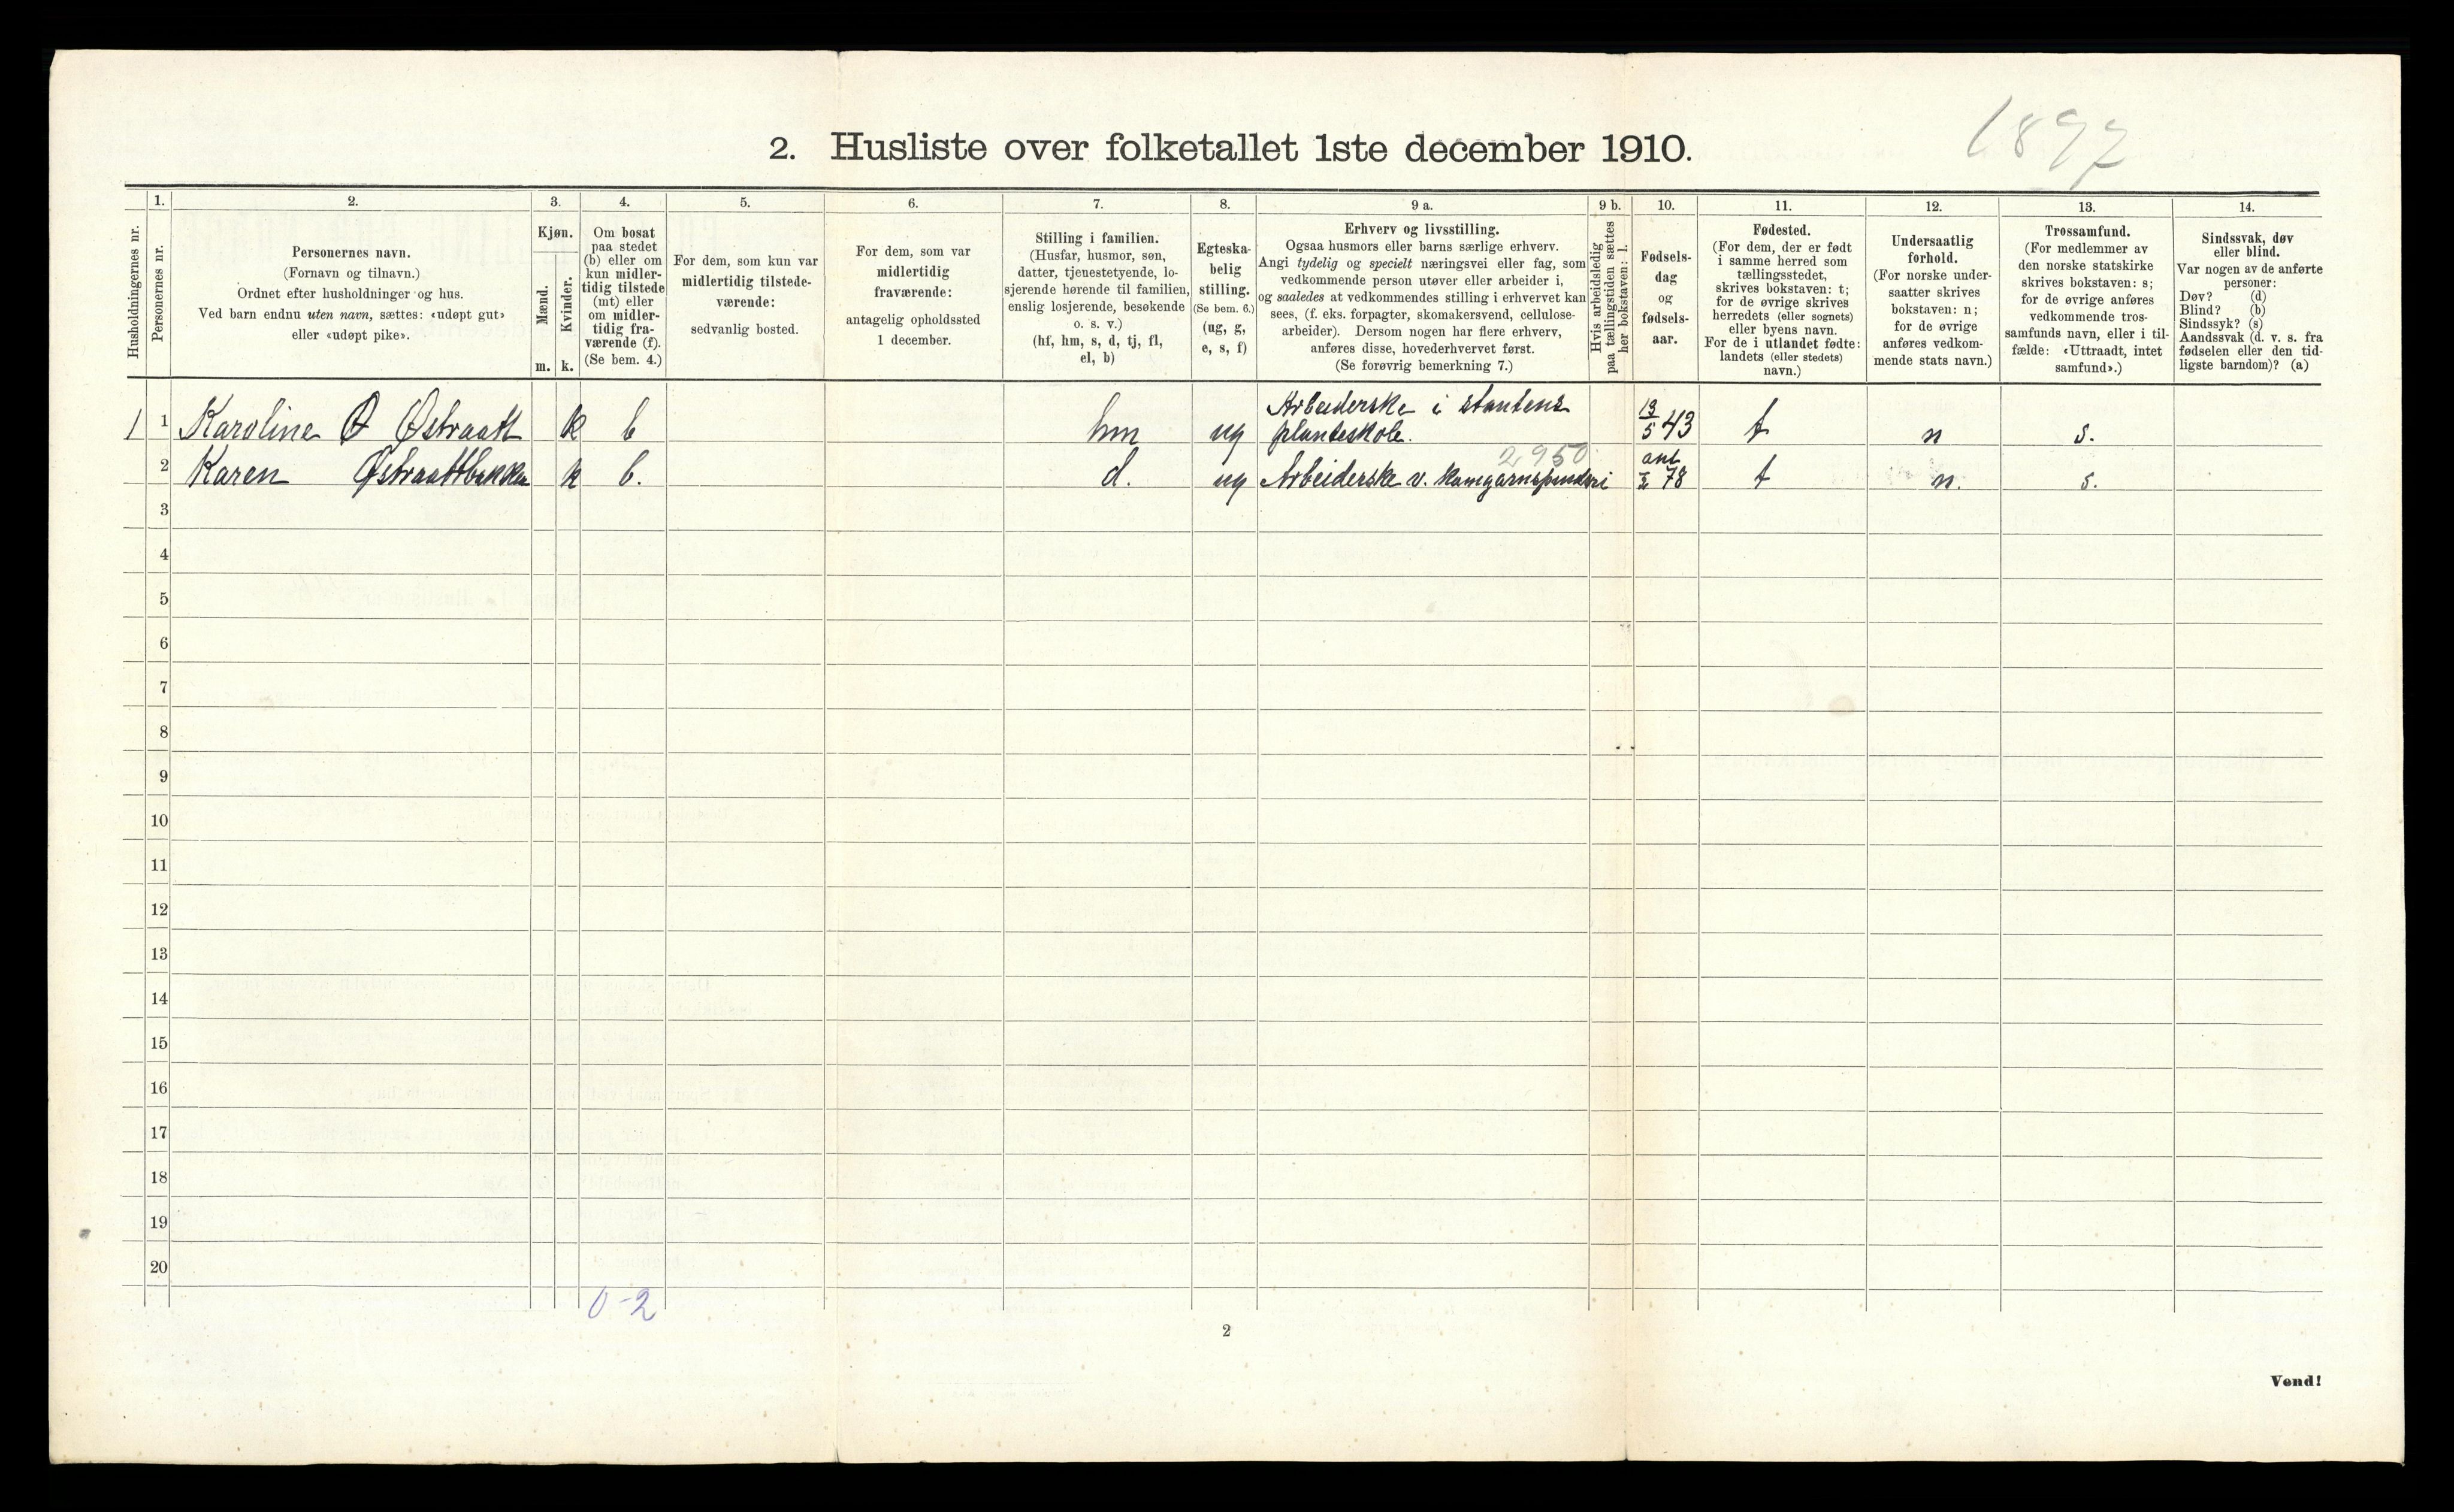 1897
2. Husliste over folketallet 1ste december 1910.
Husholdningernes nr.
1.
Personernes nr.
2.
Personernes navn.
(Fornavn og tilnavn.)
Ordnet efter husholdninger og hus.
Ved barn endnu uten navn, sættes: «udøpt gut»
eller «udøpt pike».
3.
Kjøn.
Mænd.
m.
Kvinder.
k.
4.
Om bosat
paa stedet
(b) eller om
kun midler-
tidig tilstede
(mt) eller
om midler-
tidig fra-
værende (f).
(Se bem. 4.)
5.
For dem, som kun var
midlertidig tilstede-
værende:
sedvanlig bosted.
6.
For dem, som var
midlertidig
fraværende:
antagelig opholdssted
1 december.
7.
Stilling i familien.
(Husfar, husmor, søn,
datter, tjenestetyende, lo-
sjerende hørende til familien,
enslig losjerende, besøkende
o. s. v.)
(hf, hm, s, d, tj, fl,
el, b)
8.
Egteska-
belig
stilling.
(Se bem. 6.)
(ug, g,
e, s, f)
9 a.
Erhverv og livsstilling.
Ogsaa husmors eller barns særlige erhverv.
Angi tydelig og specielt næringsvei eller fag, som
vedkommende person utøver eller arbeider i,
og saaledes at vedkommendes stilling i erhvervet kan
sees, (f. eks. forpagter, skomakersvend, cellulose-
arbeider). Dersom nogen har flere erhverv,
anføres disse, hovederhvervet først.
(Se forøvrig bemerkning 7.)
9 b.
Hvis arbeidsledig
paa tællingstiden sættes
her bokstaven: l.
10.
Fødsels-
dag
og
fødsels-
aar.
11.
Fødested.
(For dem, der er født
i samme herred som
tællingsstedet,
skrives bokstaven: t;
for de øvrige skrives
herredets (eller sognets)
eller byens navn.
For de i utlandet fødte:
landets (eller stedets)
navn.)
12.
Undersaatlig
forhold.
(For norske under-
saatter skrives
bokstaven: n;
for de øvrige
anføres vedkom-
mende stats navn.)
13.
Trossamfund.
(For medlemmer av
den norske statskirke
skrives bokstaven: s;
for de øvrige anføres
vedkommende tros-
samfunds navn, eller i til-
fælde: «Uttraadt, intet
samfund».)
14.
Sindssvak, døv
eller blind.
Var nogen av de anførte
personer:
Døv? (d)
Blind? (b)
Sindssyk? (s)
Aandssvak (d. v. s. fra
fødselen eller den tid-
ligste barndom)? (a)
1 1 Karoline Ø Østraatt k b hm ug Arbeiderske i statens planteskole. 13/5 43 t n s.
2950
2 Karen Østraattbakken k b. d. ug Arbeiderske v. kamgarnspinderi 78 t n. s.
3
4
5
6
7
8
9
10
11
12
13
14
15
16
17
18
19
20
0-2
2
Vend!